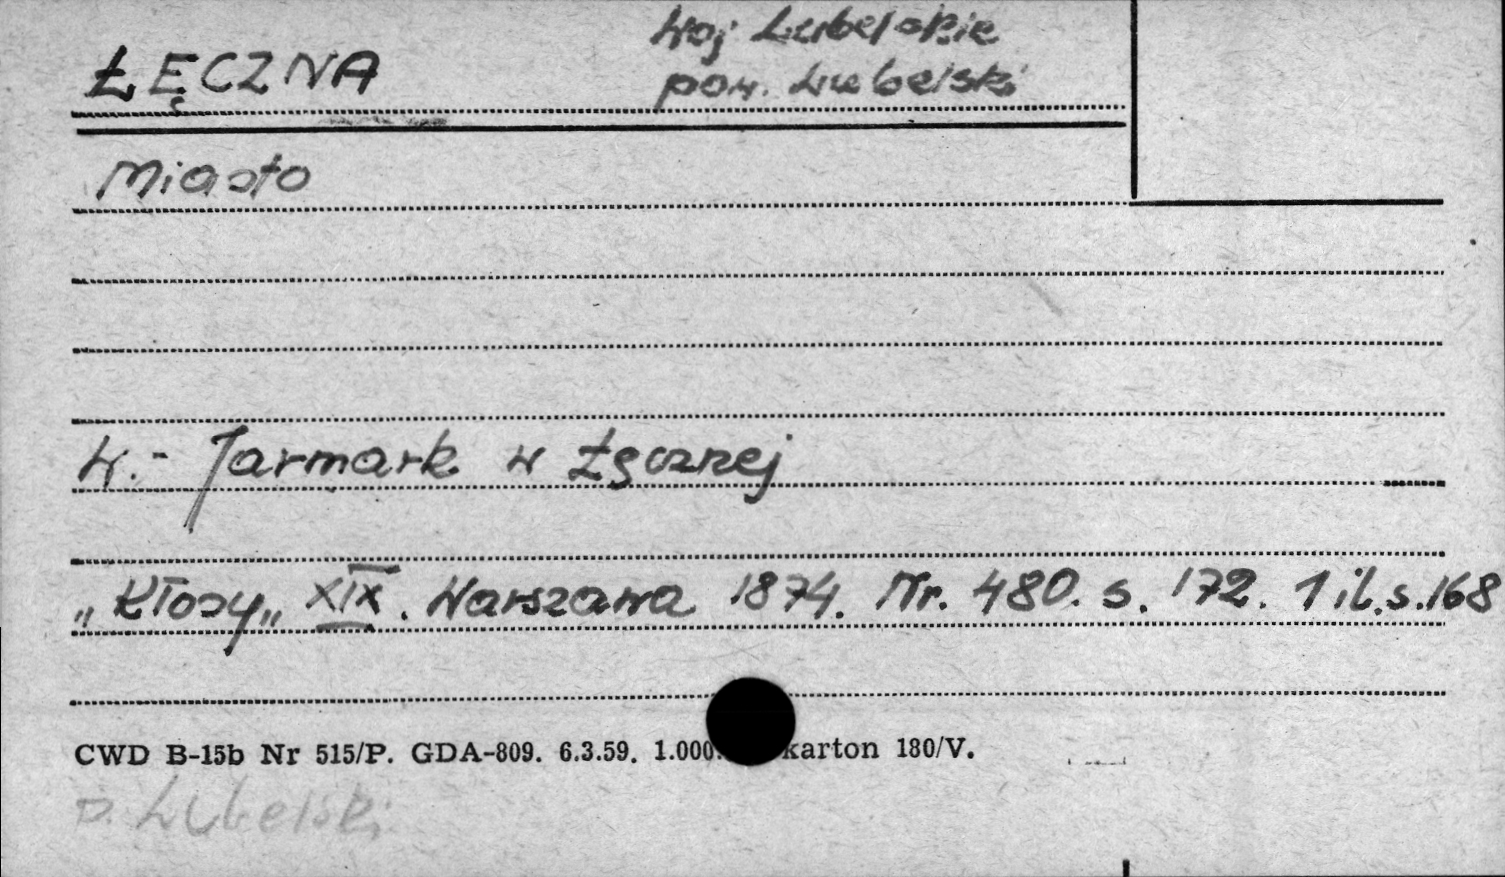 ŁĘCZNA
woj Lubelskie
pow. Lubelski
Miasto
W.- Jarmark w Łęcznej
„Kłosy„ XIX. Warszawa 1874. Nr. 480. s. 172. 1 il. s. 168
CWD B-15b Nr 515/P. GDA-809. 6.3.59. 1.000. karton 180/V.
p. Lubelski